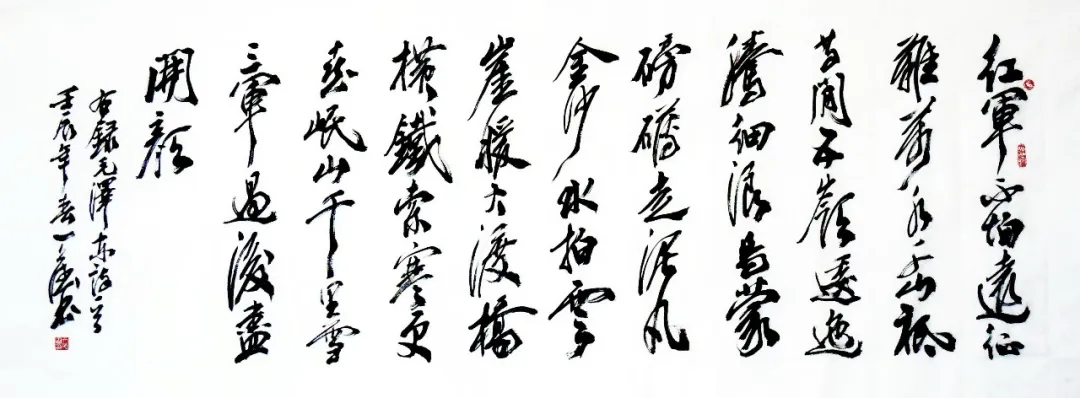 紅軍不怕遠征
難萬水千山衹
等閒五嶺逶迤
騰細浪烏蒙
磅礴走泥丸
金沙水拍雲
崖暖大渡橋
橫鐵索寒更
喜岷山千里雪
三軍過後盡
開顏
右録毛澤東詩首
壬辰年春一